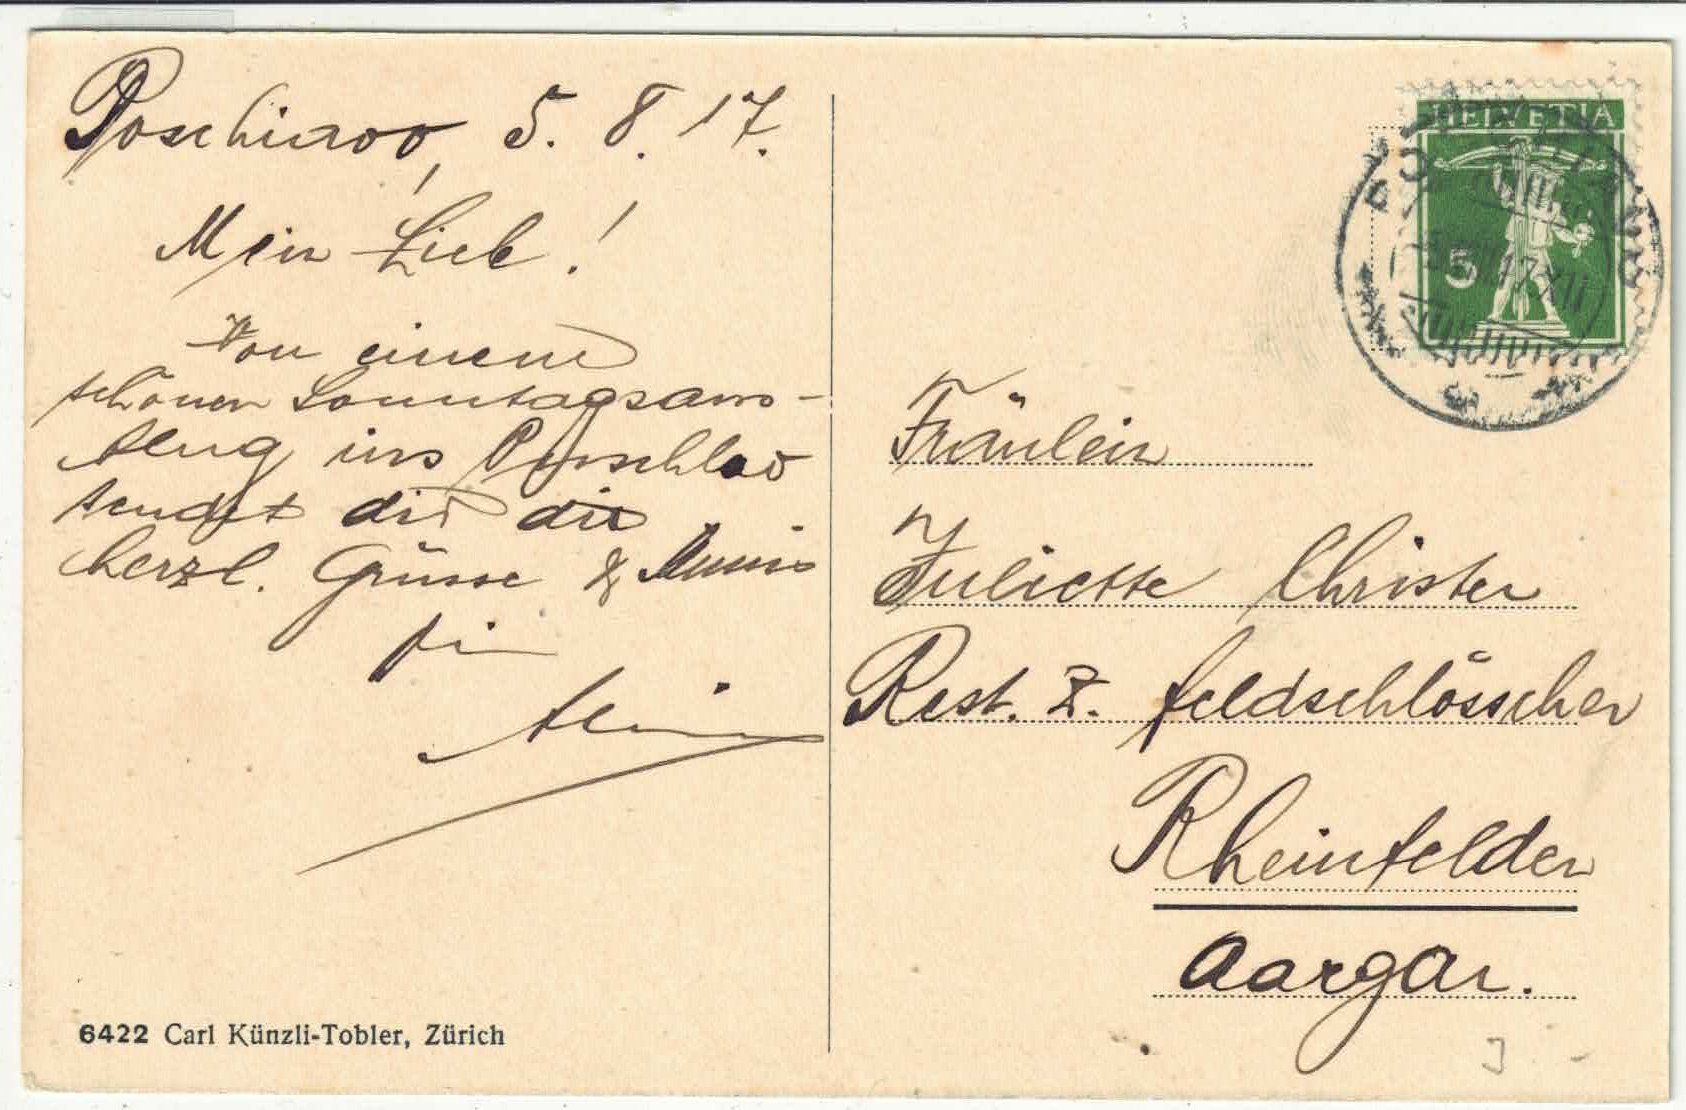 Poschiavo, 5. 8. 17.
Mein Lieb!
Von einem
schönen Sonntagsaus-
flug ins Puschlav
sendet dir die
herzl. Grüsse &
dein
HELVETIA
5
Fräulein
Juliette Christen
Rest. z. Feldschlösschen
Rheinfelden
Aargau.
6422 Carl Künzli-Tobler, Zürich